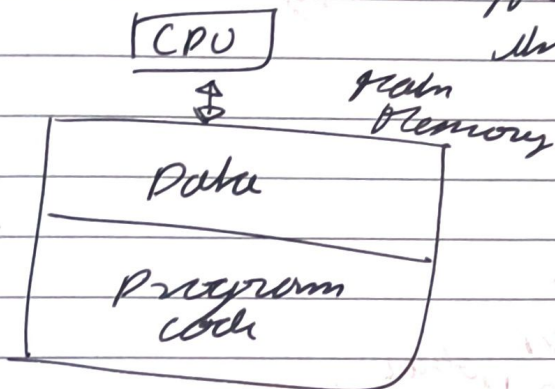 CPU
Main
Memory
Data
Program
code